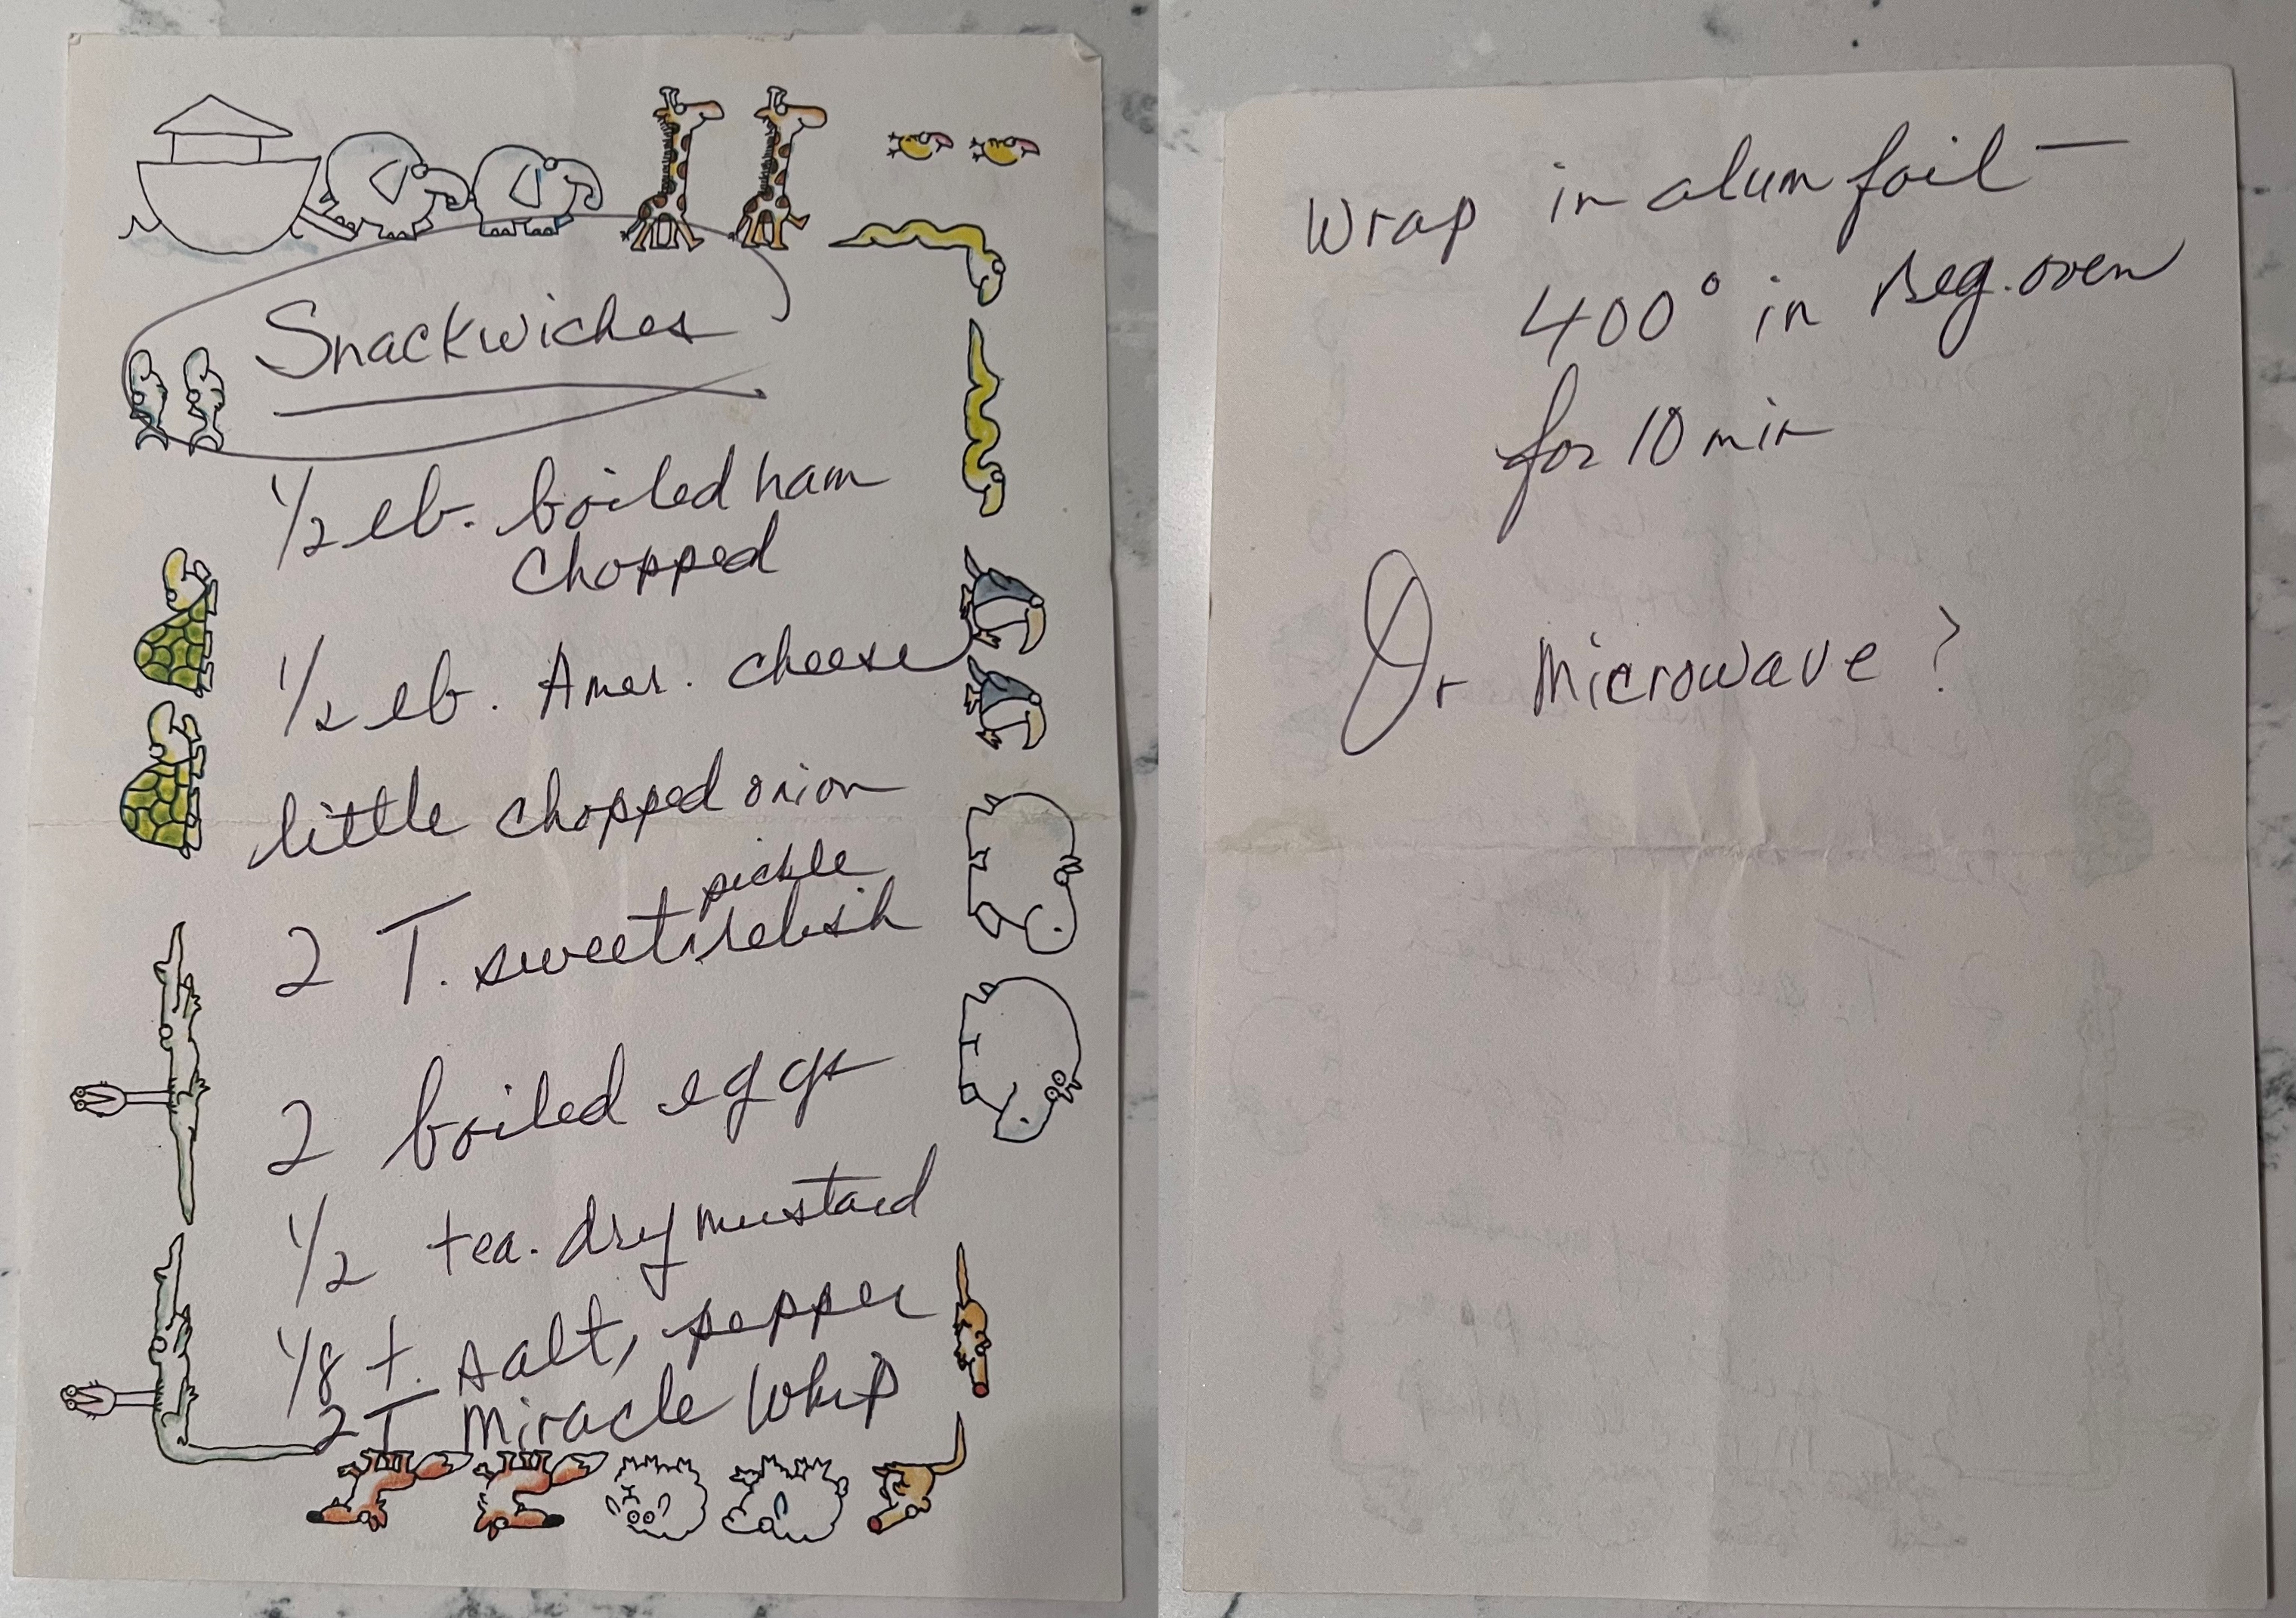 Snackwiches
1/2 lb. boiled ham
chopped
1/2 lb. Amer. cheese
little chopped onion
pickle
2 T. sweet relish
2 boiled eggs
1/2 tea. dry mustard
1/8 t. salt, pepper
2 T Miracle Whip
Wrap in alum foil —
400° in Reg. oven
for 10 min
Or Microwave?